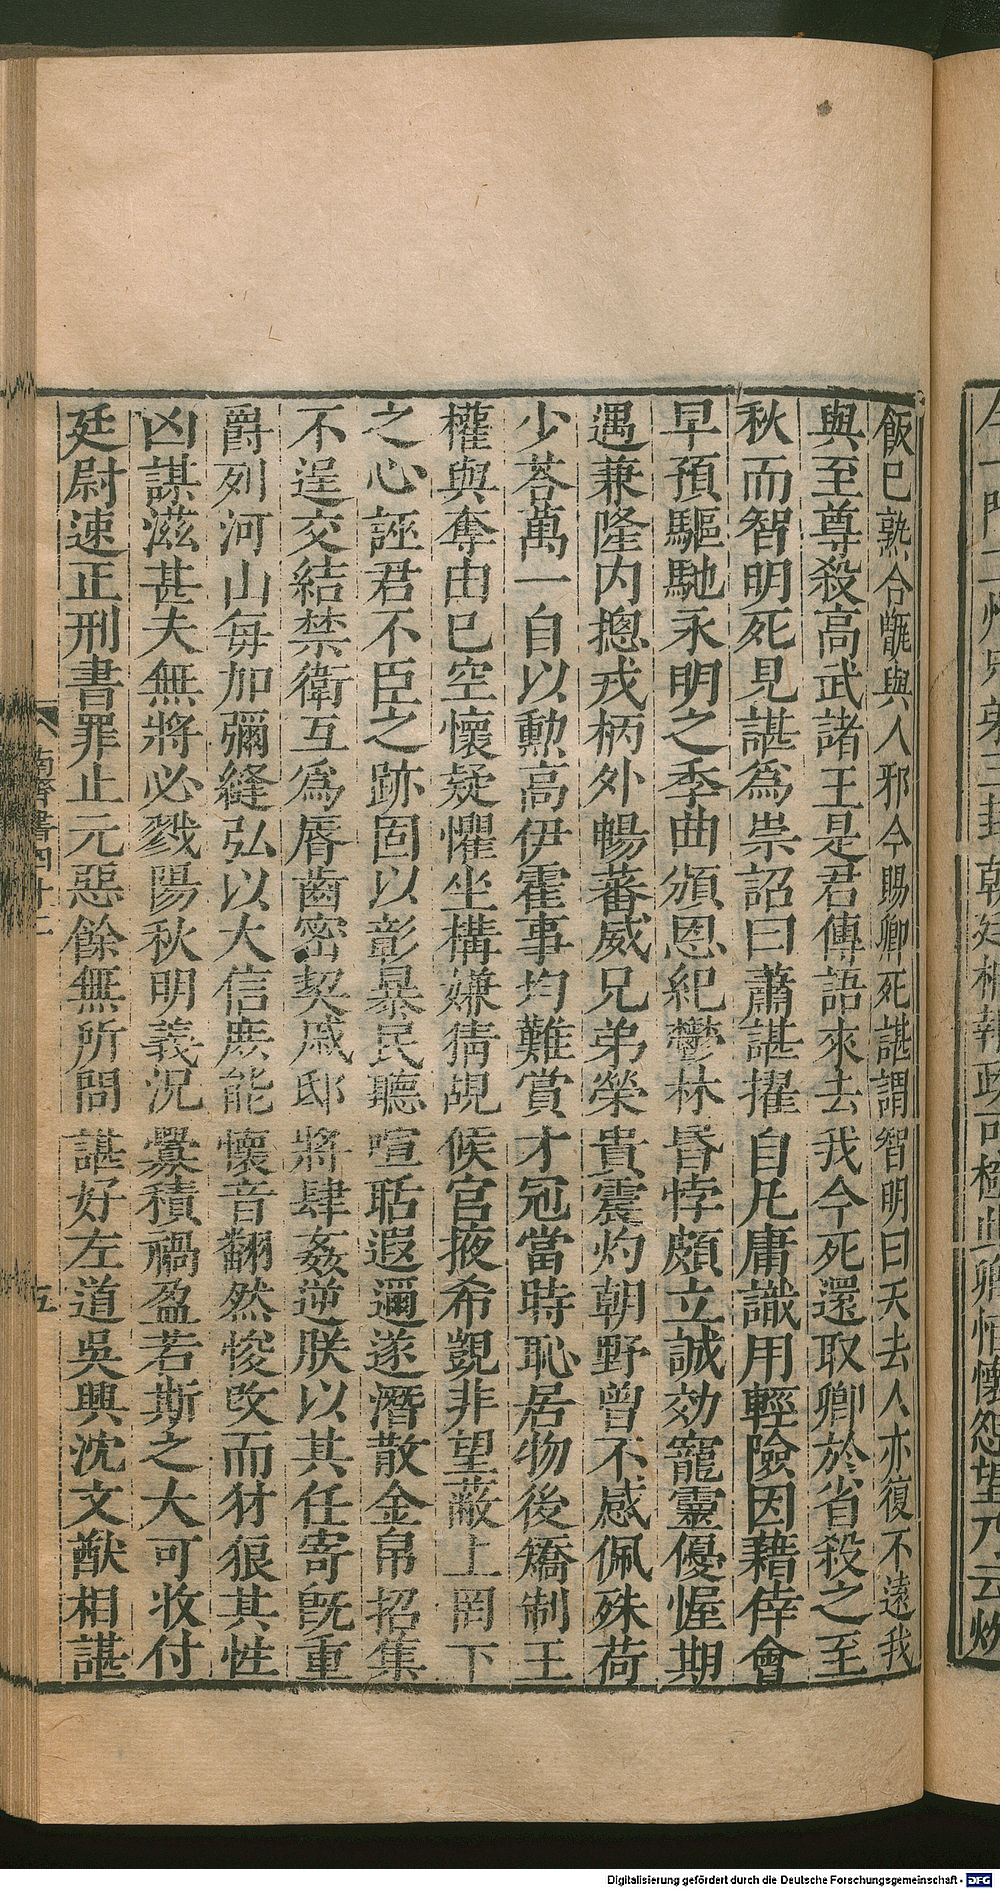 飯已熟合甑與人邪今賜卿死諶謂智明曰天去人亦復不遠我
與至尊殺高武諸王是君傳語來去我今死還取卿於省殺之至
秋而智明死見諶為祟詔曰蕭諶擢自凡庸識用輕險因藉倖會
早預驅馳永明之季曲頒恩紀鬱林昏悖頗立誠効寵靈優渥期
遇兼隆内摠戎柄外暢蕃威兄弟榮貴震灼朝野曾不感佩殊荷
少荅萬一自以勲高伊霍事均難賞才冠當時恥居物後矯制王
權與奪由已空懷疑懼坐構嫌猜覘候宫掖希覬非望蔽上罔下
之心誣君不臣之跡固以彰暴民聽喧聒遐邇遂潛散金帛招集
不逞交結禁衛互為脣齒密契戚邸將肆姦逆朕以其任寄旣重
爵列河山每加彌縫弘以大信庶能懷音翻然悛改而犲狠其性
凶謀滋甚夫無將必戮陽秋明義況釁積禍盈若斯之大可收付
廷尉速正刑書罪止元惡餘無所問諶好左道吳興沈文猷相諶
南齊書四十二
五
Digitalisierung gefördert durch die Deutsche Forschungsgemeinschaft - DFG